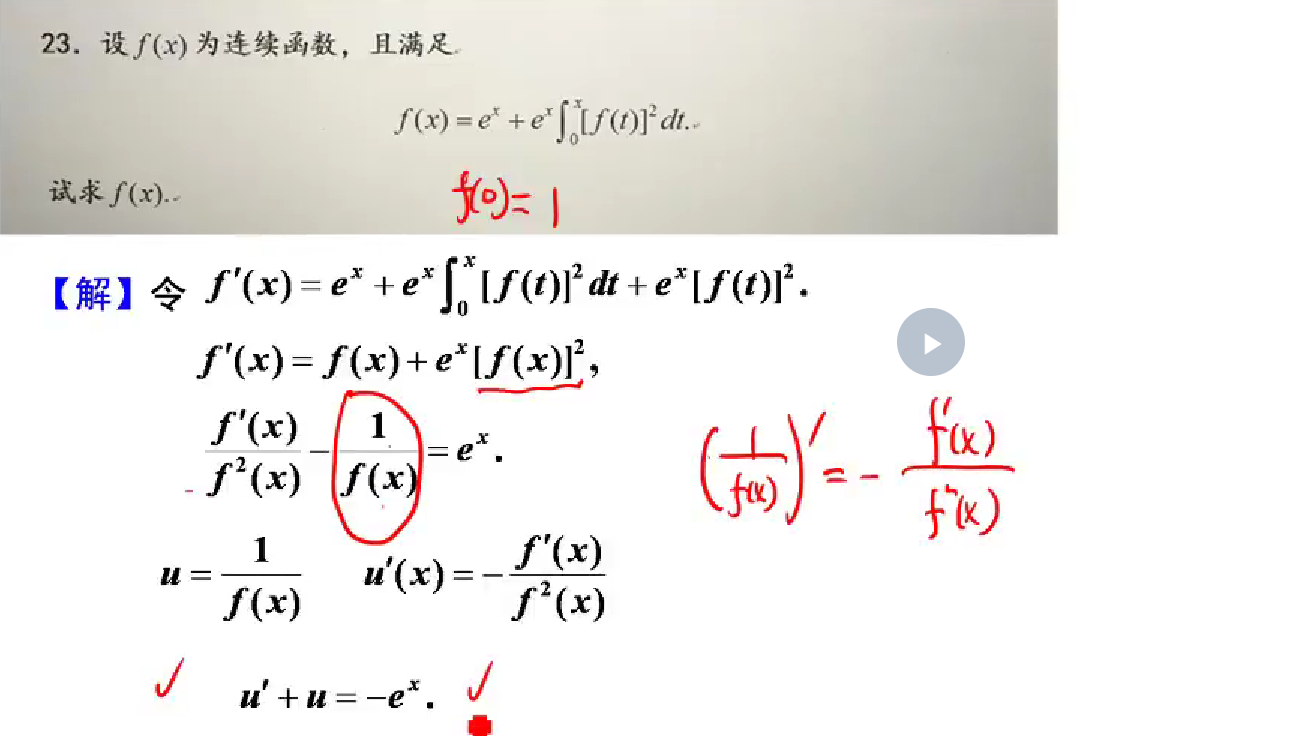 23. 设 f(x) 为连续函数，且满足
f(x) = eˣ + eˣ∫₀ˣ[f(t)]²dt.
试求 f(x).
f(0) = 1
【解】令 f'(x) = eˣ + eˣ∫₀ˣ[f(t)]²dt + eˣ[f(t)]².
f'(x) = f(x) + eˣ[f(x)]²,
f'(x)/f²(x) − 1/f(x) = eˣ.
(1/f(x))' = − f'(x)/f²(x)
u = 1/f(x) u'(x) = − f'(x)/f²(x)
u' + u = −eˣ.